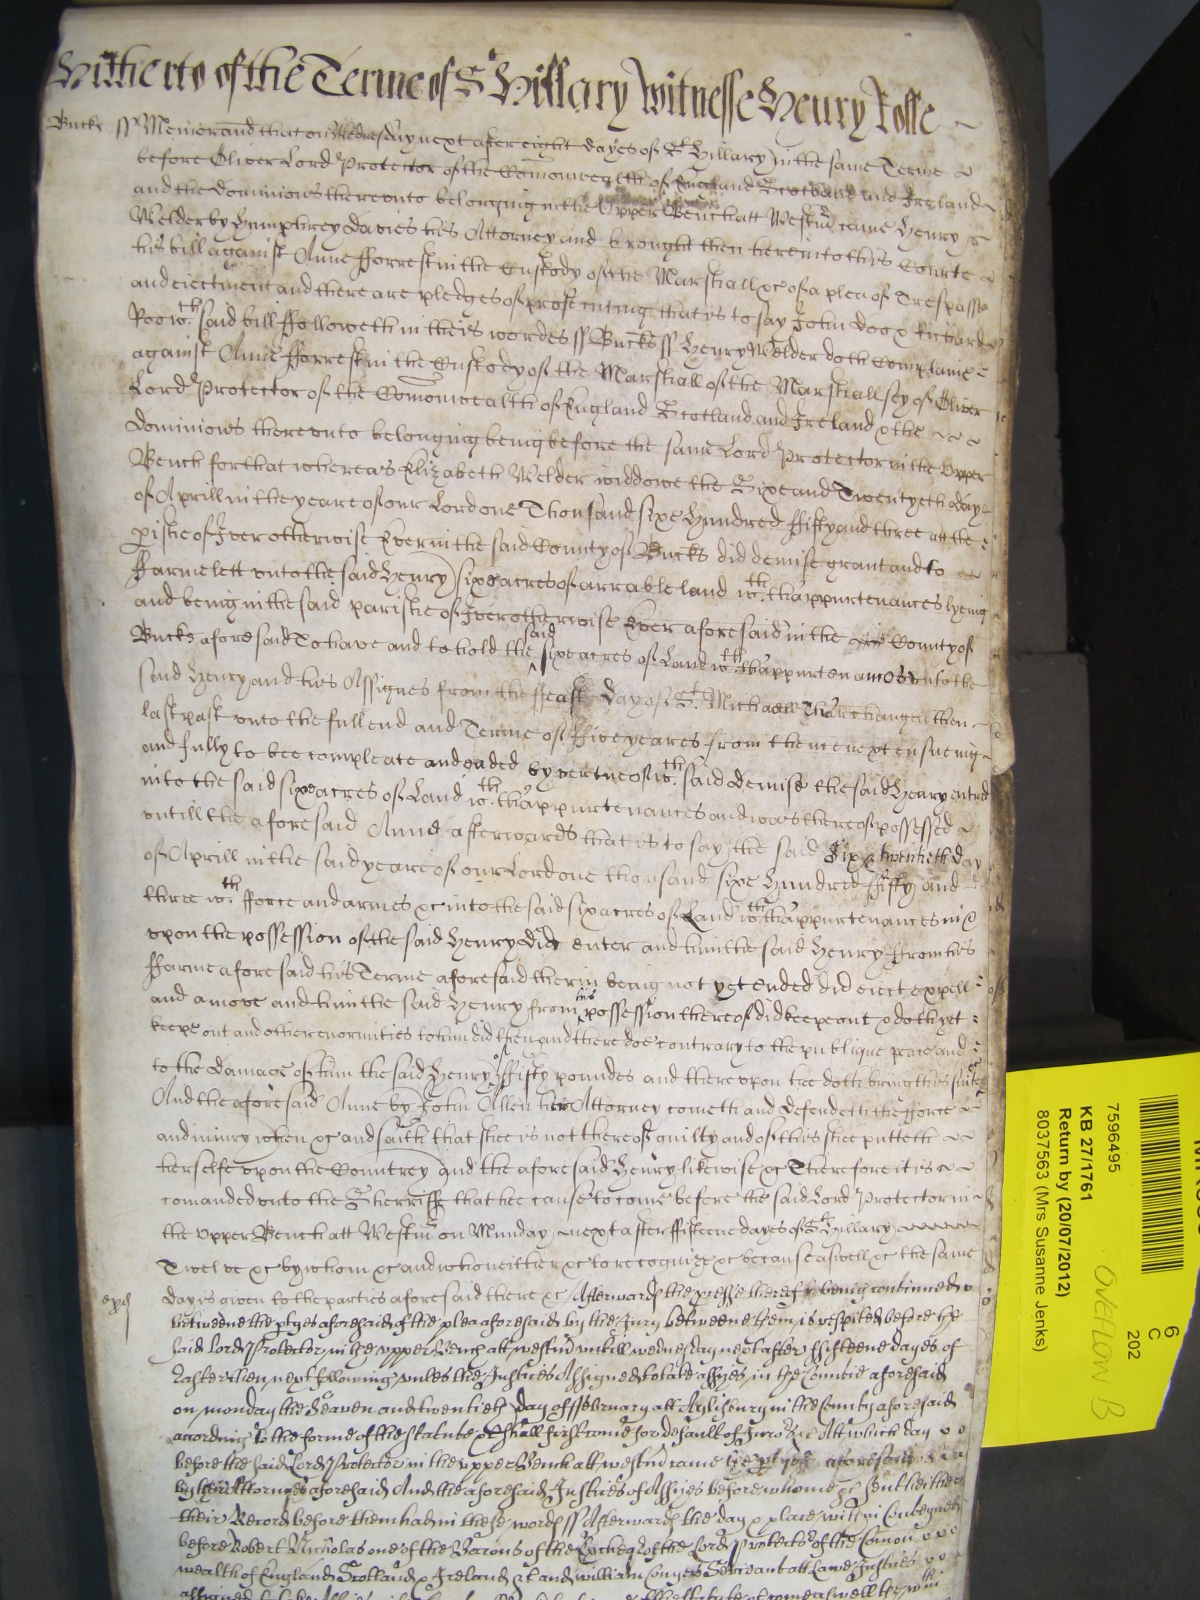 Hitherto of the Terme of St Hillary Witnesse Henry Rolle
Bucks ss Memorand that on Wednesday next after eight dayes of St Hillary in the same Terme
before Oliver Lord Protector of the Comonwealth of England Scotland and Ireland
and the dominions thereonto belonging in the Upper Bench att Westmr came Henry
Welder by Humphrey Davies his Attorney and brought then here into this Courte
his bill against Anne fforrest in the Custody of the Marshall &c of a plea of Trespasse
and eiectment and there are pledges of prosecuting that is to say John Doo & Richard
Roo wth. said bill ffolloweth in theis wordes ss Bucks ss Henry Welder doth Complaine
against Anne fforrest in the Custody of the Marshall of the Marshallsey of Oliver
Lord Protector of the Comonwealth of England Scotland and Ireland & the
dominions thereonto belonging being before the same Lord Protector in the Upper
Bench for that whereas Elizabeth Welder widdowe the Sixe and Twentyeth day
of Aprill in the yeare of our Lord one Thousand sixe Hundred ffifty and three att the
pishe of Iver otherwise Ever in the said County of Bucks did demise grant and to
ffarme lett onto the said Henry sixe acres of arrable land wth. thappurtenances lyeing
and being in the said parishe of Iver otherwise Ever aforesaid in the County of
Bucks aforesaid To have and to hold the said sixe acres of Land wth thappurtenances onto the
said Henry and his Assignes from the ffeast day of St. Michaell Tharchangell then
last past onto the full end and Terme of ffive yeares from thence next ensueing
and fully to bee compleate and ended by vertue of wth. said demise the said Henry entred
into the said sixe acres of Land wth. thappurtenances and was thereof possessed
ontill the aforesaid Anne afterwards that is to say the said Six & twentieth day
of Aprill in the said yeare of our Lord one thousand sixe Hundred ffifty and
three wth. fforce and armes &c into the said six acres of Land wth. thappurtenances in &
upon the possession of the said Henry did enter and him the said Henry ffrom his
ffarme aforesaid his Terme aforesaid therin being not yet ended did eiect expell
and amove and him the said Henry from his possession thereof did keepe out & doth yet
keepe out and other enormities to him did then and there doe contrary to the publique peace and
to the damage of him the said Henry of ffifty poundes and there upon hee doth bring this suite
And the aforesaid Anne by John Allen her Attorney cometh and defendeth the fforce
and iniury when &c and saith that shee is not thereof guilty and of this shee putteth
herselfe upon the Countrey and the aforesaid Henry likewise &c Therefore it is
comanded onto the Sherriffe that hee cause to come before the said Lord Protector in
the Upper Bench att Westmr on Munday next after ffifteene dayes of St Hillary
Twelve &c by whom &c and who neither &c to recognize &c because aswell &c the same
day is given to the parties aforesaid there &c Afterwards the processe thereof being continued
betweene the ptyes aforesaid of the plea aforesaid by the Jury betweene them is respited before the
said Lord Protector in the upper Bench att westmr untill wednesday next after ffifteene dayes of
Easter then next following unles the Justices Assigned to take assizes in the Countie aforesaid
on monday the Seaven and twentieth day of ffebruary att Aylisbury in the County aforesaid
according to the forme of the statute &c shall first come for default of Jurors &c Att which day
before the said Lord Protector in the upper Bench att westmr came the ptyes aforesaid
by their Attornyes aforesaid And the aforesaid Justices of Assizes before whome &c sent hether
their Record before them had in these words ss Afterwards the day & place within conteyned
before Robert Nicholas one of the Barons of the Excheqr of the Lord Protector of the Comon
wealth of England Scotland & Ireland &c and william Conyers Serieant att Lawe Justices
7596495
KB 27/1761
Return by (20/07/2012)
8037563 (Mrs Susanne Jenks)
6
C
202
OVERFLOW B